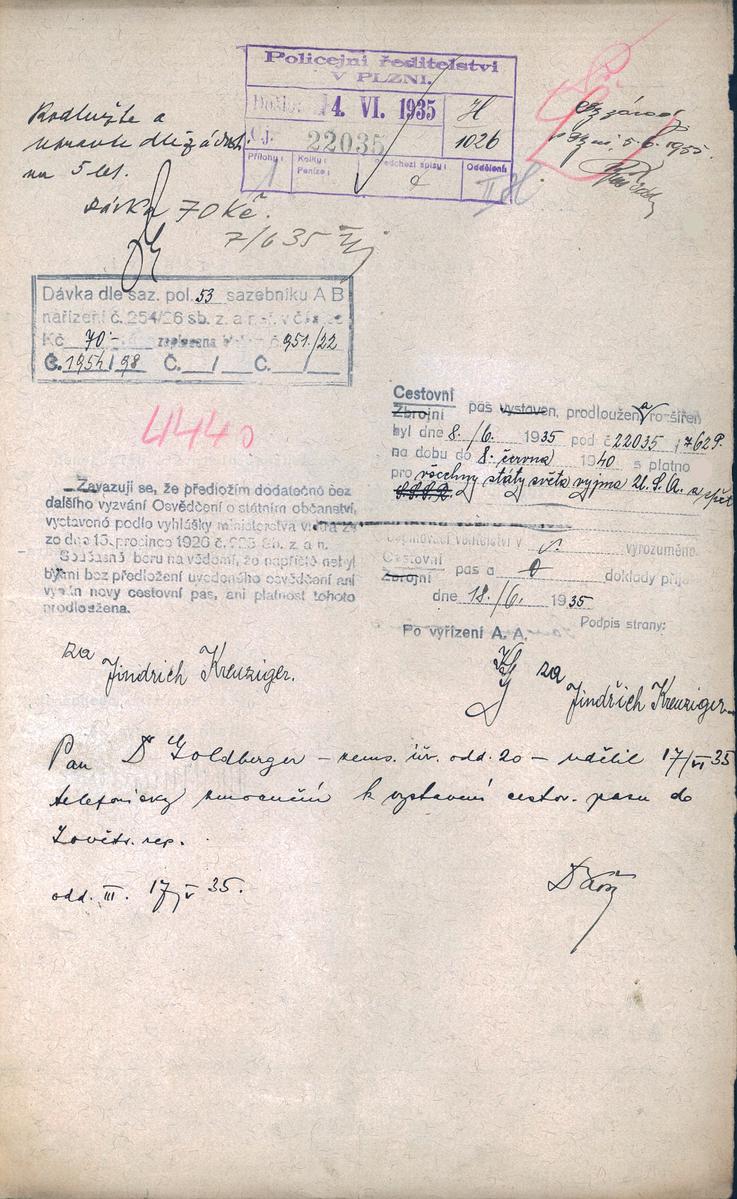 Policejní ředitelství
V PLZNI.
Došlo: 14. VI. 1935
H
1026
Čj. 22035
Přílohy: 1
Kolky:
Peníze:
Předchozí spisy:
Oddělení:
5. 6. 1935.
Prodlužte a
upravte dle žádosti
na 5 let.
Dávka 70 Kč.
7/6 35
Dávka dle saz. pol. 53 sazebníku A B
nařízení č. 254/26 sb. z. a n.
Kč 70·-
č. 951/22
Č. / Č. /
4440
Cestovní
Zbrojní pas vystaven, prodloužen a rozšířen
byl dne 8. /6. 1935 pod č 22035
na dobu do 8. června 1940 s platno
pro všechny státy světa vyjma U. S. A. a zpět
Zavazuji se, že předložím dodatečně bez
dalšího vyzvání Osvědčení o státním občanství,
vystavené podle vyhlášky ministerstva vnitra
ze dne 13. prosince 1926 č. sb. z. a n.
Současně beru na vědomí, že napříště nebyl
by mi bez předložení uvedeného osvědčení ani
vydán nový cestovní pas, ani platnost tohoto
prodloužena.
vyrozuměno.
Cestovní
Zbrojní pas a doklady přijal
dne 18. /6. 1935
Podpis strany:
Po vyřízení A. A.
za Jindrich Kreuziger.
za Jindřich Kreuziger.
Pan Dr Goldberger – zems. úř. odd. 20 – udělil 17/VI 35
telefonicky zmocnění k vystavení cestov. pasu do
Sověts. rep.
odd. III. 17/V 35.